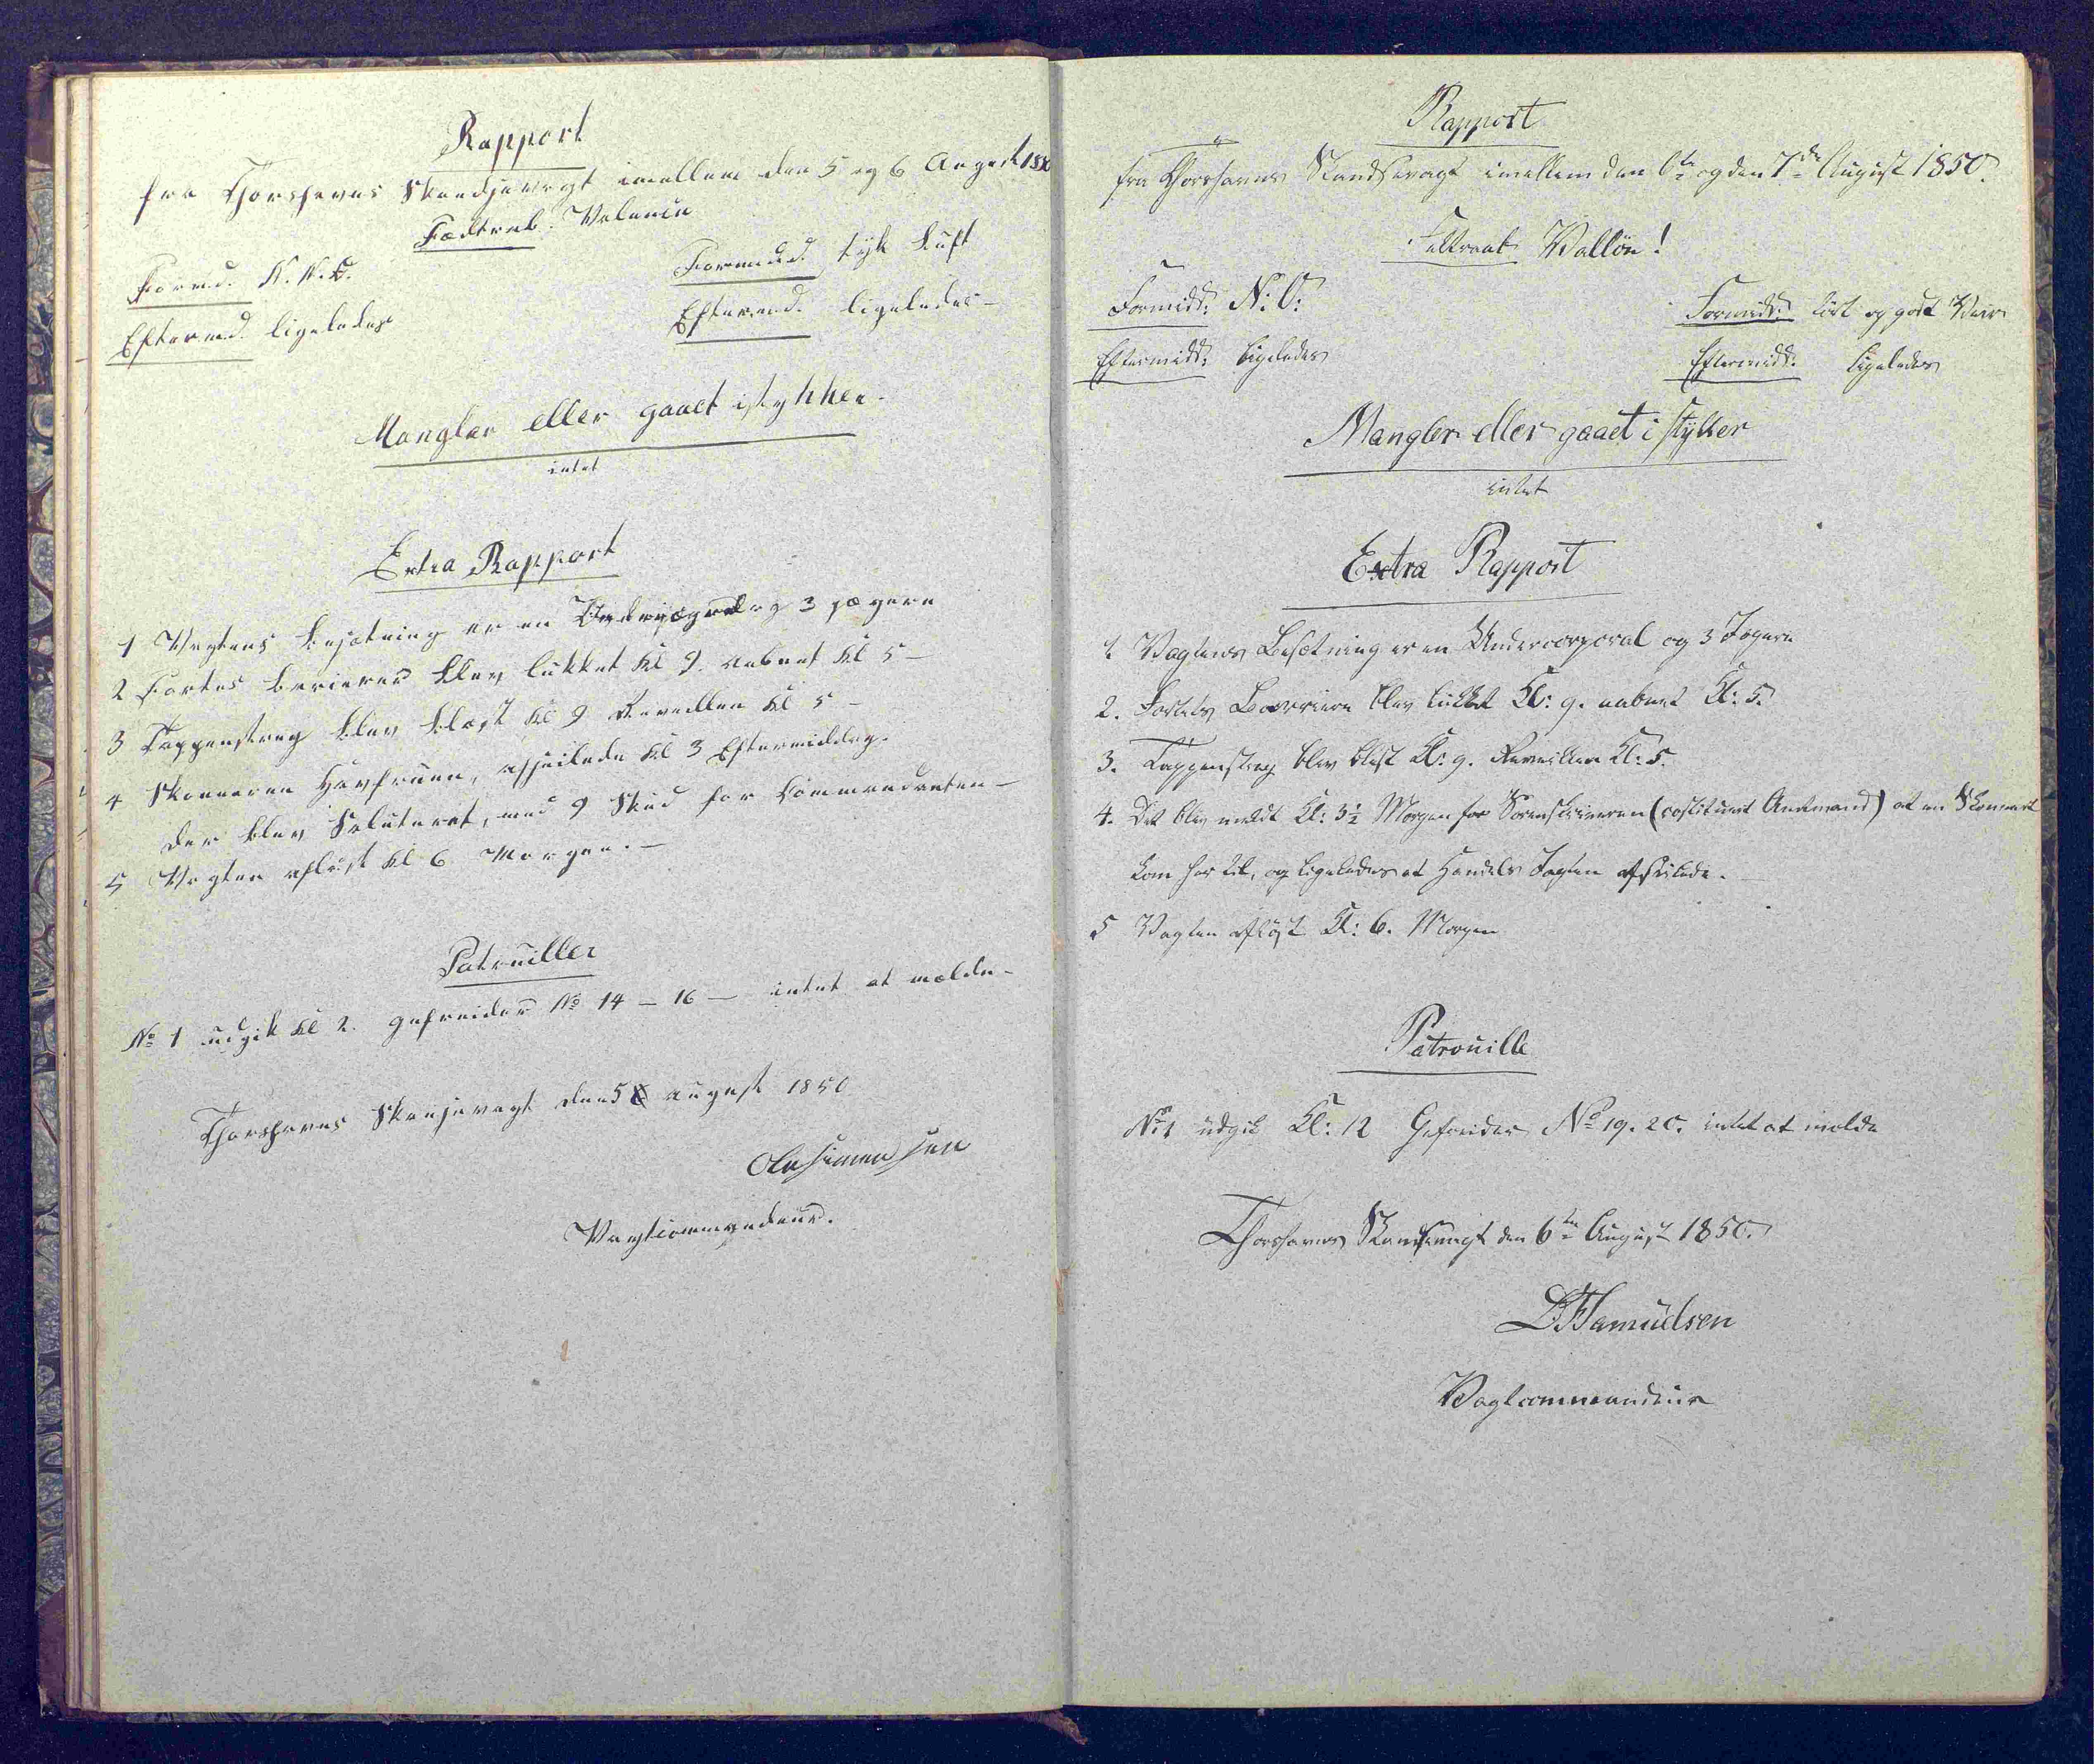 Rapport
fra Thorshavns Skandsevagt imellem den 5 og 6 August 1850
Fædtrab. Valencia
Formd. N.N.O.
Eftermd. ligeledes
Formidd. tyk Luft
Eftermd. ligeledes –
Mangler eller gaaet istykker.
intet
Extra Rapport
1 Vagtens besætning er en og 3 jægere
2 Fortes barierer blev lukket Kl 9. aabnet Kl 5 –
3 Tappenstreg blev blæst Kl 9 Reveillen Kl 5 –
4 Skonneren Havfruen, afseilede Kl 3 Eftermiddag.
der blev Saluteret, med 9 Skud for Commandanten –
5 Vagten afløst Kl 6 Morgen. –
Patruiller
No 1 udgik Kl 2. gefreider No 14 – 16 – intet at melde –
Thorshavns Skansevagt den 5 august 1850
Ole Simensen
Vagtcommandeur.
Rapport
fra Thorshavns Skandsevagt imellem den 6te og den 7de August 1850.
Feltraab Wallön!
Formidd: N: O:
Eftermidd: ligeledes
Formidd: löst og godt Veir
Eftermidd: ligeledes
Mangler eller gaaet i stykker
intet
Extra Rapport
1. Vagtens Besætning er en Undercorporal og 3 Jægere
2. Fortets Barriere blev lukket Kl: 9. aabnet Kl: 5.
3. Tappenstreg blev blæst Kl: 9. Reveillen Kl: 5.
4. Det blev meldt Kl: 3½ Morgen for Sorenskriveren (costitueret Amtmand) at en Skonnert
kom her til, og ligeledes at Handels Jagten afseilede.
5 Vagten afløst Kl: 6. Morgen
Patrouille
No 1 udgik Kl: 12 Gefreider No 19. 20. intet at melde
Thorshavns Skansevagt den 6te August 1850.
Samuelsen
Vagtcommandeur